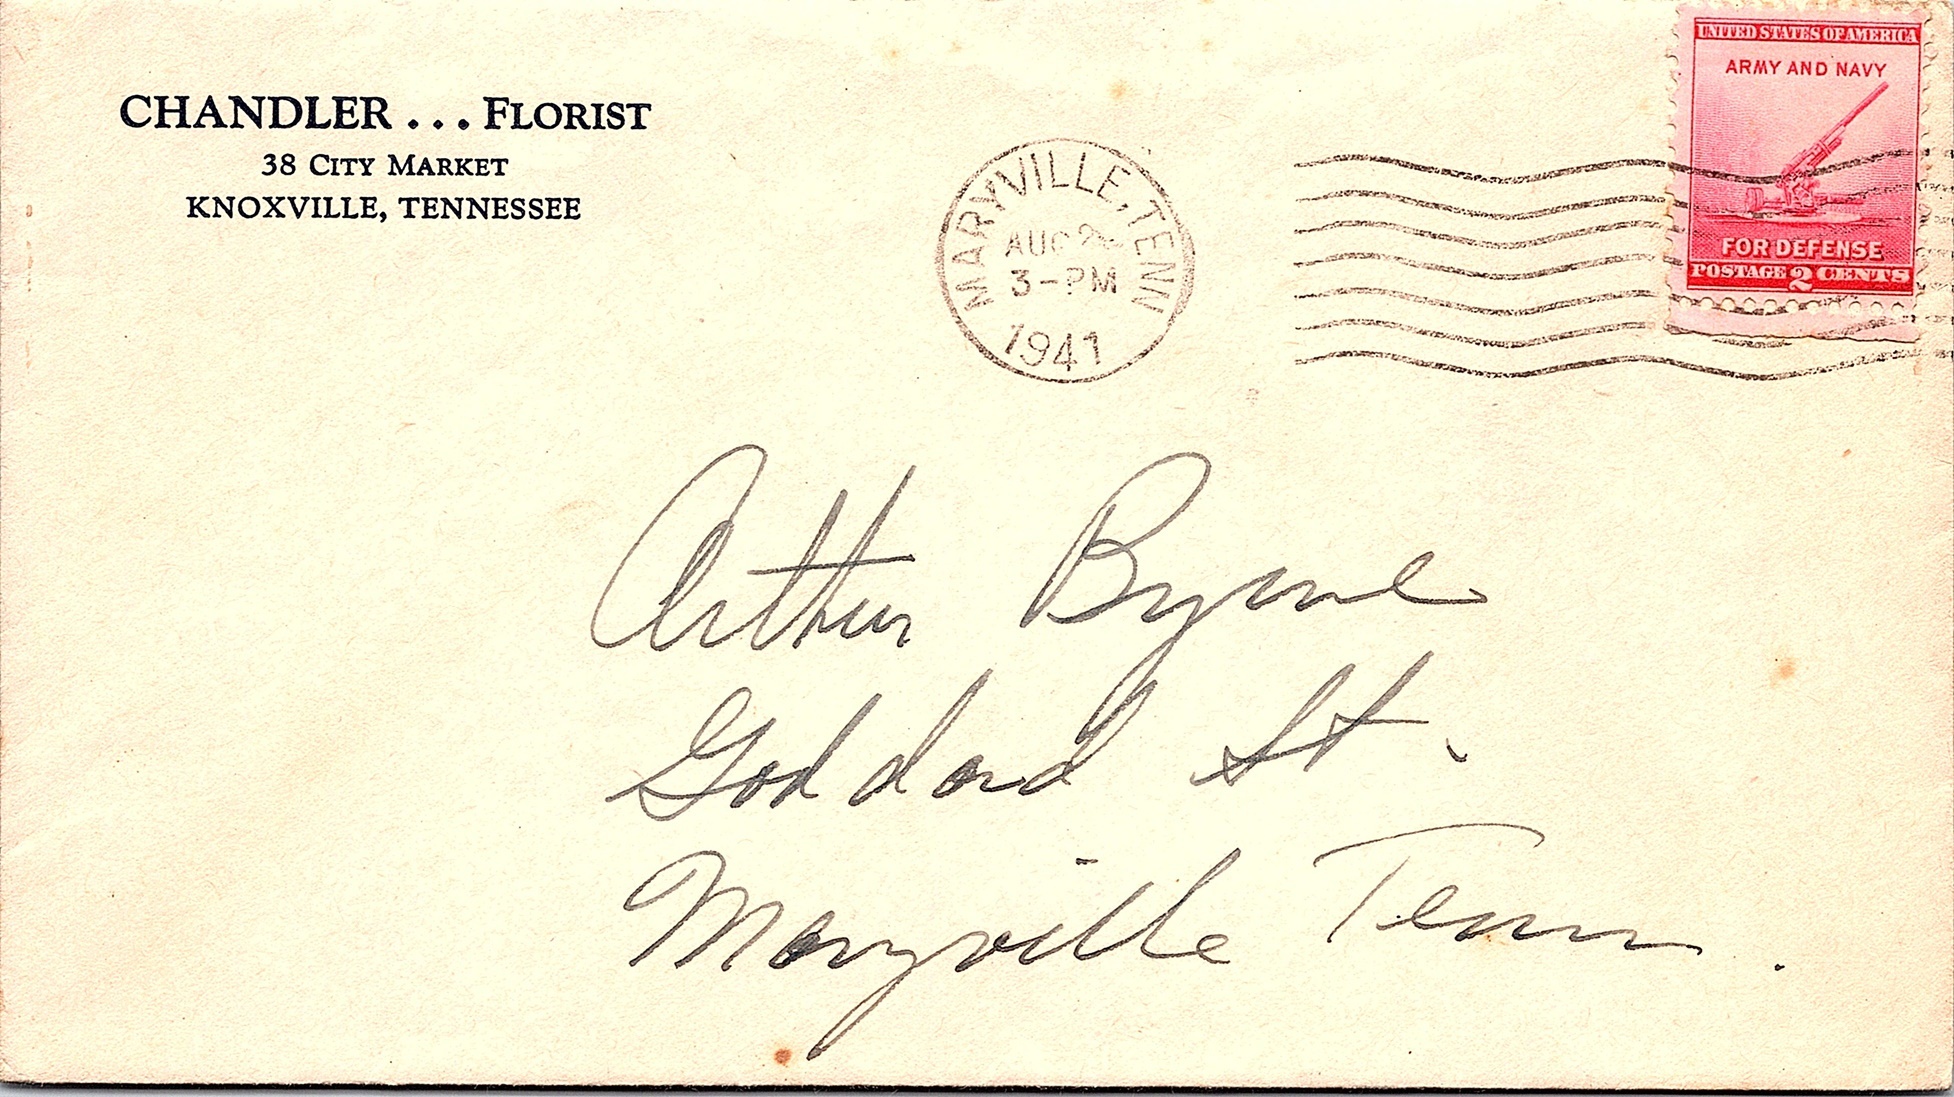 CHANDLER... FLORIST
38 CITY MARKET
KNOXVILLE, TENNESSEE
MARYVILLE, TENN
AUG
3-PM
1941
UNITED STATES OF AMERICA
ARMY AND NAVY
FOR DEFENSE
POSTAGE 2 CENTS
Arthur Byrne
Goddard St.
Maryville Tenn.